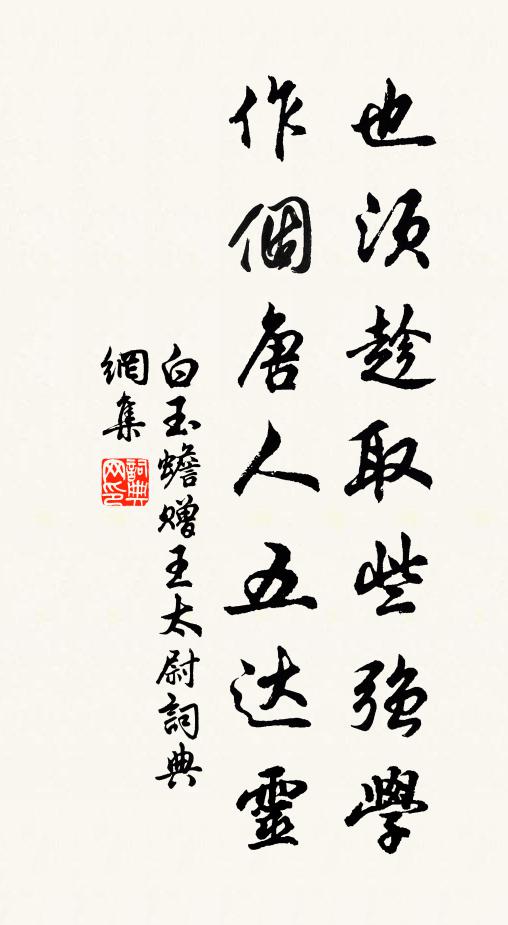 也須趁取些強學
作個唐人五达靈
白玉蟾赠王太尉詞典
網集
詞典
网印